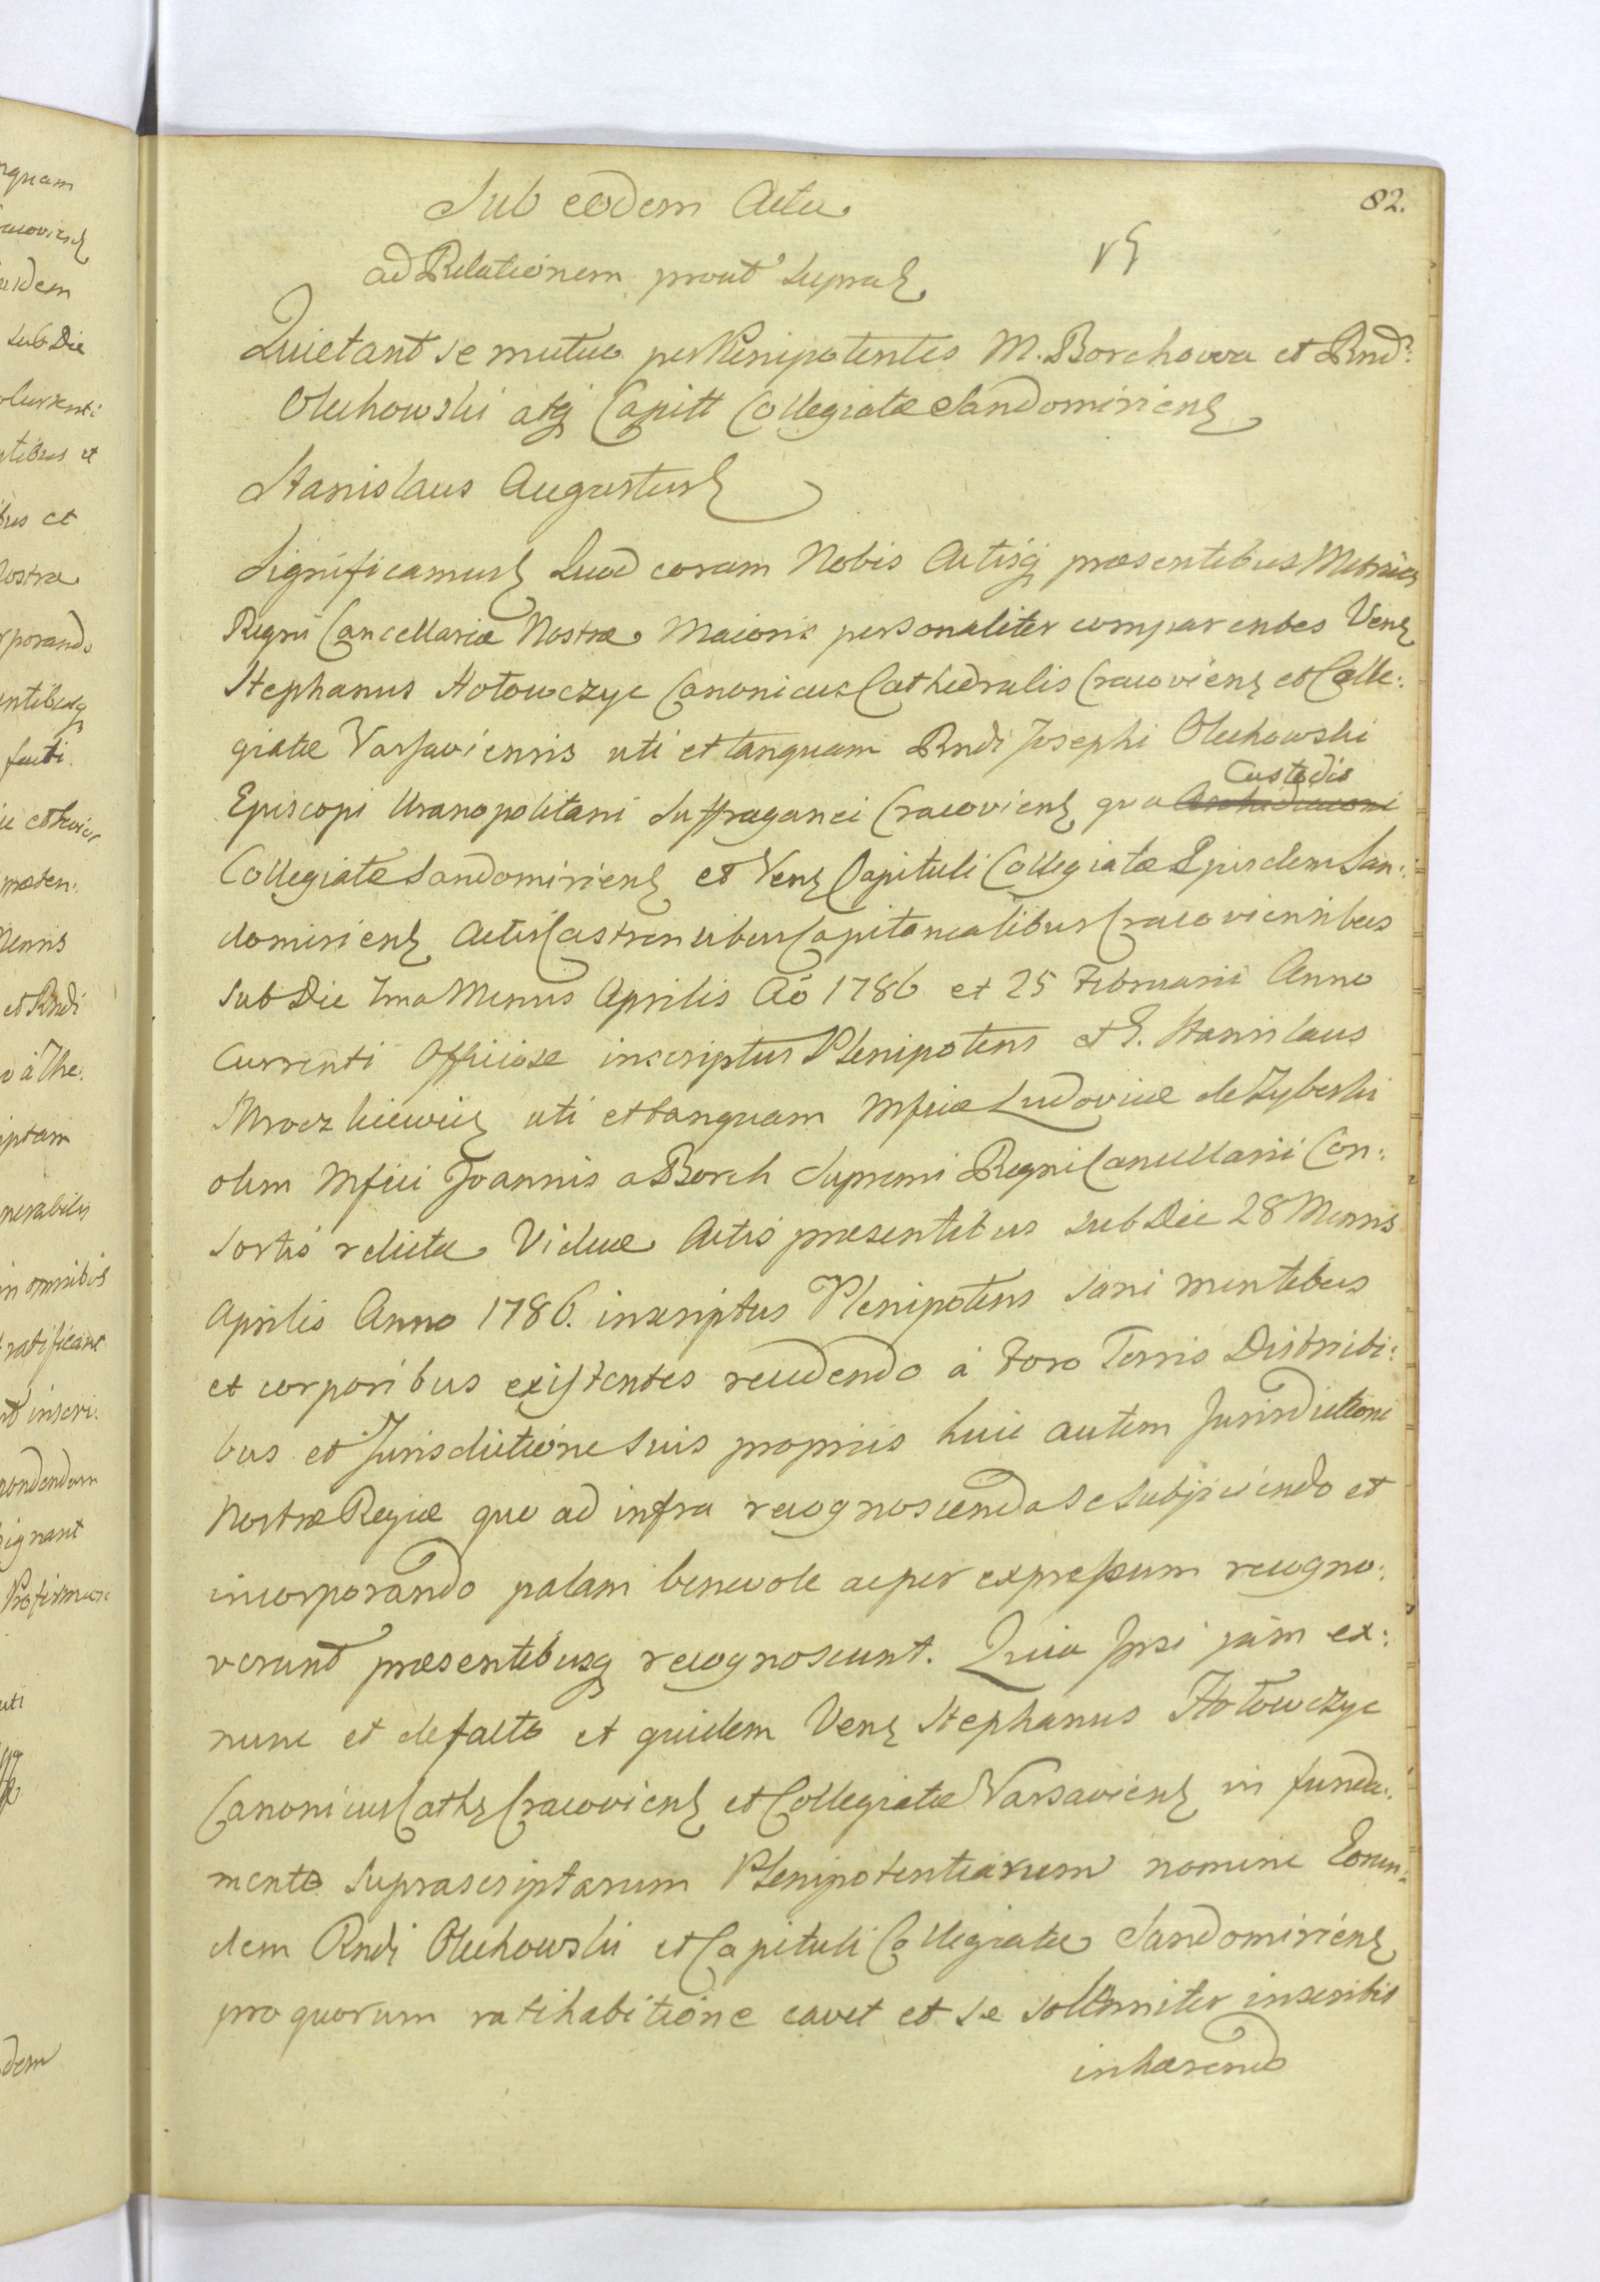 82.
Sub eodem Actu
ad Relationem prout supra
Quietant se mutuo per Plenipotentes M. Borchowa et Rnd:
Oluhowski atq Capitt Collegiatæ Sandomiriens
Stanislaus Augustus
Significamus Quod coram Nobis Actisq præsentibus Metrices
Regni Cancellariæ Nostræ Maioris personaliter comparentes Vens
Stephanus Hołowczyc Canonicus Cathedralis Cracoviens et Colle:
giatæ Varsaviensis uti et tanquam Rndi Josephi Oluhowski
Custodis
Episcopi Uranopolitani Suffraganei Cracoviens qua Archidiaconi
Collegiatæ Sandomiriens et Vens Capituli Collegiatæ Ejusdem San:
domiriens Actis Castrensibus Capitanealibus Cracoviensibus
sub Die Ima Mensis Aprilis Aõ 1786 et 25 Februarii Anno
Currenti Officiose inscriptus Plenipotens et G. Stanislaus
Mroczkiewicz uti et tanquam Mficæ Ludovicæ de Zyberki
olim Mfici Joannis a Borch Supremi Regni Cancellarii Con:
sortis relictæ Viduæ Actis præsentibus sub Die 28 Mensis
Aprilis Anno 1786. inscriptus Plenipotens sani mentibus
et corporibus existentes recedendo à Foro Terris Districti:
bus et Jurisdictione suis propriis huic autem Jurisdictioni
Nostræ Regiæ quo ad infra recognoscenda se subjiciendo et
incorporando palam benevole ac per expressum recogno:
verunt præsentibusq recognoscunt. Quia Ipsi jam ex:
nunc et de facto et quidem Vens Stephanus Hołowczyc
Canonicus Caths Cracoviens et Collegiatæ Varsaviens in funda:
mento suprascriptarum Plenipotentiarum nomine Eorun:
dem Rndi Oluhowski et Capituli Collegiatæ Sandomiriens
pro quorum ratihabitione cavet et se solemniter inscribit
inhærendo